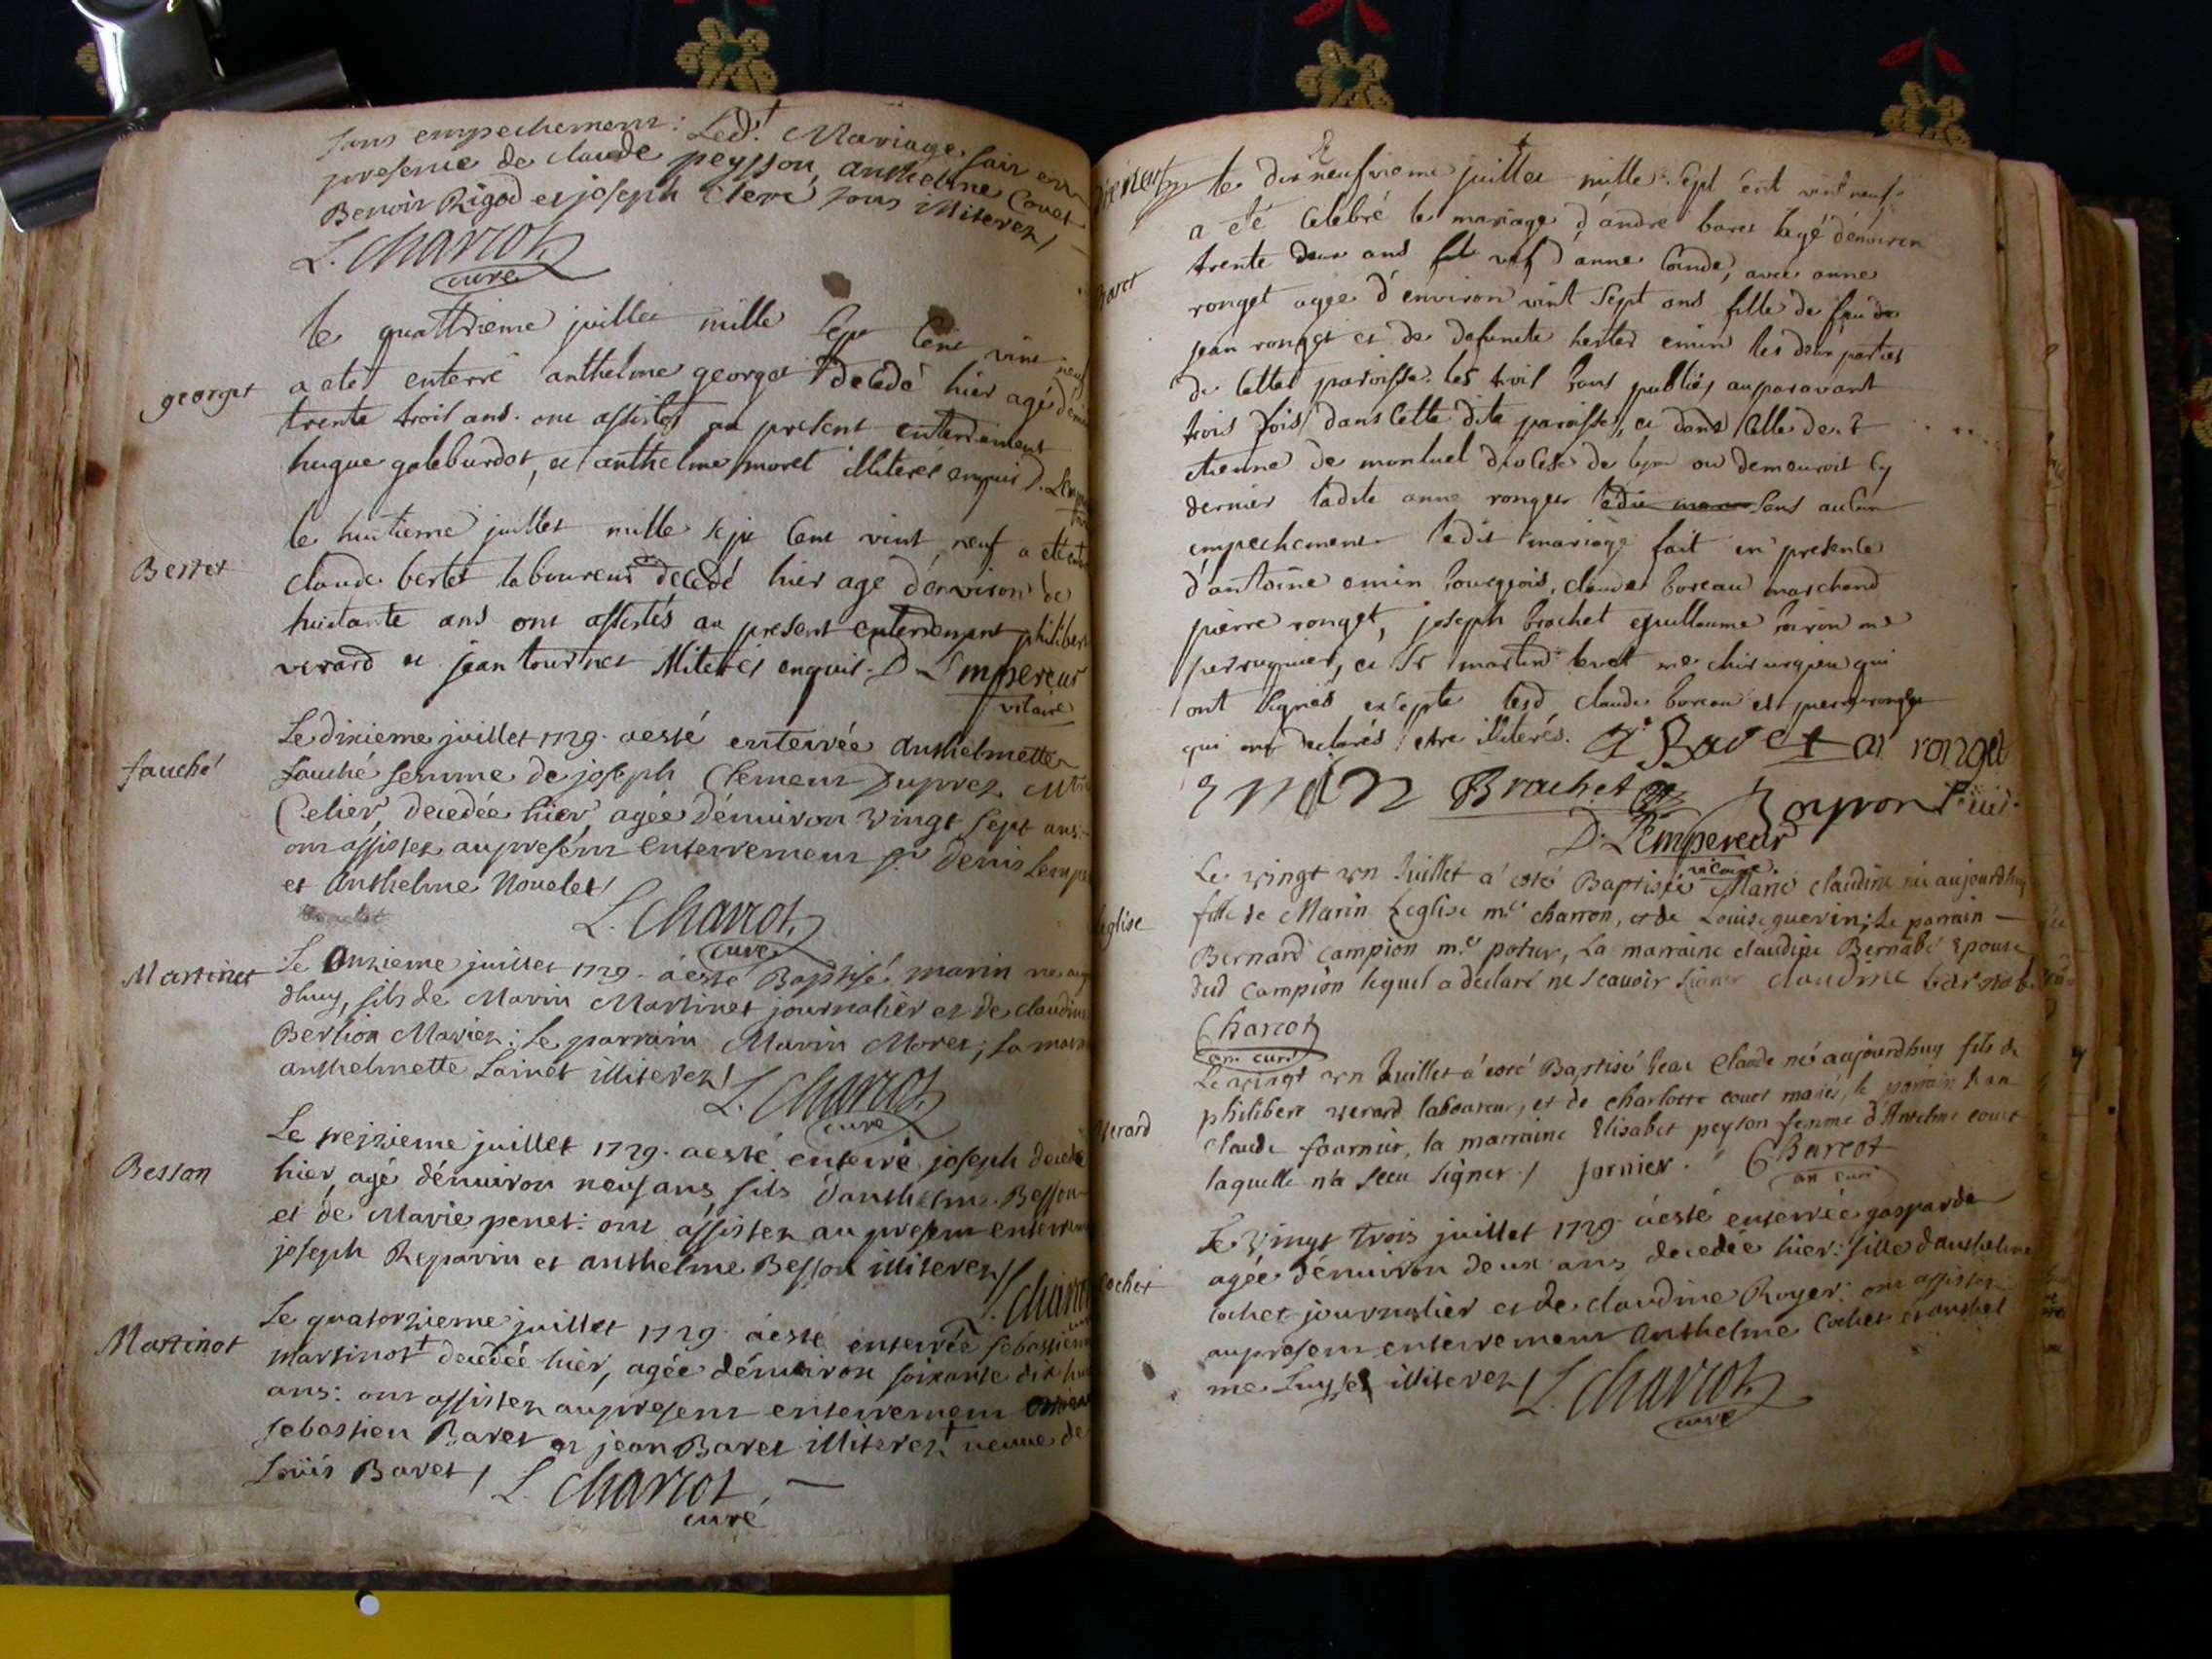 sans empechement: Led.t Mariage fair en
presence de claude peysson, anthelme Couet
Benoir Rigod et joseph Clerc sous illiterez /
L. Charcot
curé
le quattrieme juillet mille Sept Cent vint neuf
georget
a eté enterré anthelme georget decedé hier agé d'envi
trente troil ans. ont assistes au present enterrement
hugue galeburdet, et anthelme moret illiterés enquis D. Lem
le huitieme juillet mille sept Cent vint neuf a eté ent
Bertet
claude bertet laboureur decedé hier agé d'environ de
huitante ans ont assistés au present enterrement philiber
verard et jean tournet illiterés enquis. D Lempereur
vicaire
Le dixieme juillet 1729. a esté enterrée Anthelmette
fauché
fauché femme de joseph Clement Duprez Mtre
Celier, decedée hier, agée d'enuiron vingt sept ans:
ont assistez au present enterrement Sr. denis Lemp
et Anthelme Nouelet /
L. Charcot
curé
Martinet
Le Onzieme juillet 1729. a esté Baptisé marin ne auj
dhuy, fils de Marin Martinet journalier et de claudine
Berlion Mariez: Le parrain Marin Moret; la marr
anthelmette Lainet illiterez /
L. Charcot
curé
Le treizieme juillet 1729. a esté enterré joseph decedé
Besson
hier, agé d'enuiron neuf ans, fils d'anthelme Besson
et de Marie penet: ont assistez au present enterrem
joseph Reparin et anthelme Besson illiterez /
L. Charcot
Le quatorzieme juillet 1729. a esté enterrée sebastienne
Martinot
Martinot + decedée hier, agée d'enuiron soixante dix hui
ans: ont assistez au present enterrement
Sebastien Baret et jean Baret illiterez + veuue de
Loüis Baret / L. Charcot
curé
le dix neufvieme juillet mille Sept Cent vint neuf
a eté Celebré le mariage d'andré baret agé d'environ
Baret
trente deux ans vef d'anne Conde, avec anne
ronget agée d'environ vint Sept ans fille de feu
jean ronget et de defuncte hester emin les deux parties
de Cette paroisse. les troil bans publiés auparavant
trois fois dans Cette dite paroisse, et dans Celle de St
etienne de montuel diocese de lyon ou demeuroit Cy
dernier ladite anne ronget Sans aucun
empechement ledit mariage fait en presence
d'antoine emin bourgeois, claude boreau marchand
pierre ronget, joseph brachet guillaume me
perruquier, et Sr martin levet me chirurgien qui
ont Signés excepté lesd. claude boreau et pierre ronget
qui ont declarés etre illiterés. Baret ar ronget
Emin Brachet
D. Lempereur
vicaire
Le vingt vn Juillet a esté Baptisée Marie claudine née aujourdhuy
Leglise
fille de Marin Leglise m.e charron, et de Louise guerin; Le parrain
Bernard Campion m.e potier, La marraine claudine Bernabé Epouse
dud Campion lequel a declaré ne scauoir signer claudine bernabé
Charcot
an. curé
Le vingt vn Juillet a esté Baptisé Jean Claude né aujourdhuy fils de
Verard
philibert verard laboureur, et de charlotte couet mariés, le parrain Jean
claude fournier, la marraine Elisabet peyson femme d'Antelme couet
laquelle n'a sceu signer / fornier. Charcot
an. curé
Le Vingt trois juillet 1729. a esté enterrée gasparde
agée d'enuiron deux ans, decedée hier: fille d'anthelme
Cochet
Cochet journalier et de claudine Royer: ont assistez
au present enterrement Anthelme Cochet et anthel
me illiterez / L. Charcot
curé